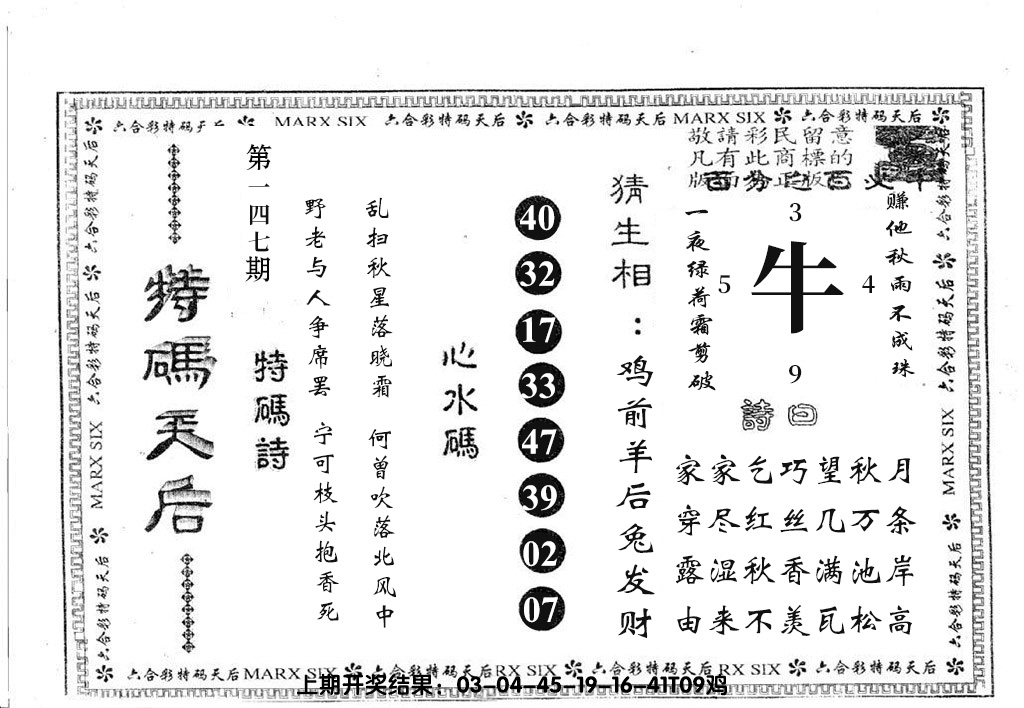 六合彩特码天后 MARX SIX 六合彩特码天后 六合彩特码天后 MARX SIX 六合彩特码天后
敬請彩民留意
凡有此商標的
版面為正版
第一四七期
特碼天后
特碼詩
野老与人争席罢 宁可枝头抱香死
乱扫秋星落晓霜 何曾吹落北风中
心水碼
40
32
17
33
47
39
02
07
猜生相：鸡前羊后兔发财
一夜绿荷霜剪破
赚他秋雨不成珠
3
5 牛 4
9
詩曰
家家乞巧望秋月
穿尽红丝几万条
露湿秋香满池岸
由来不羡瓦松高
六合彩特码天后 MARX SIX 六合彩特码天后
六合彩特码天后 六合彩特码天后 六合彩特码天后
六合彩特码天后 MARX SIX 六合彩特码天后RX SIX 六合彩特码天后RX SIX 六合彩特码天后
上期开奖结果：03-04-45-19-16-41T09鸡